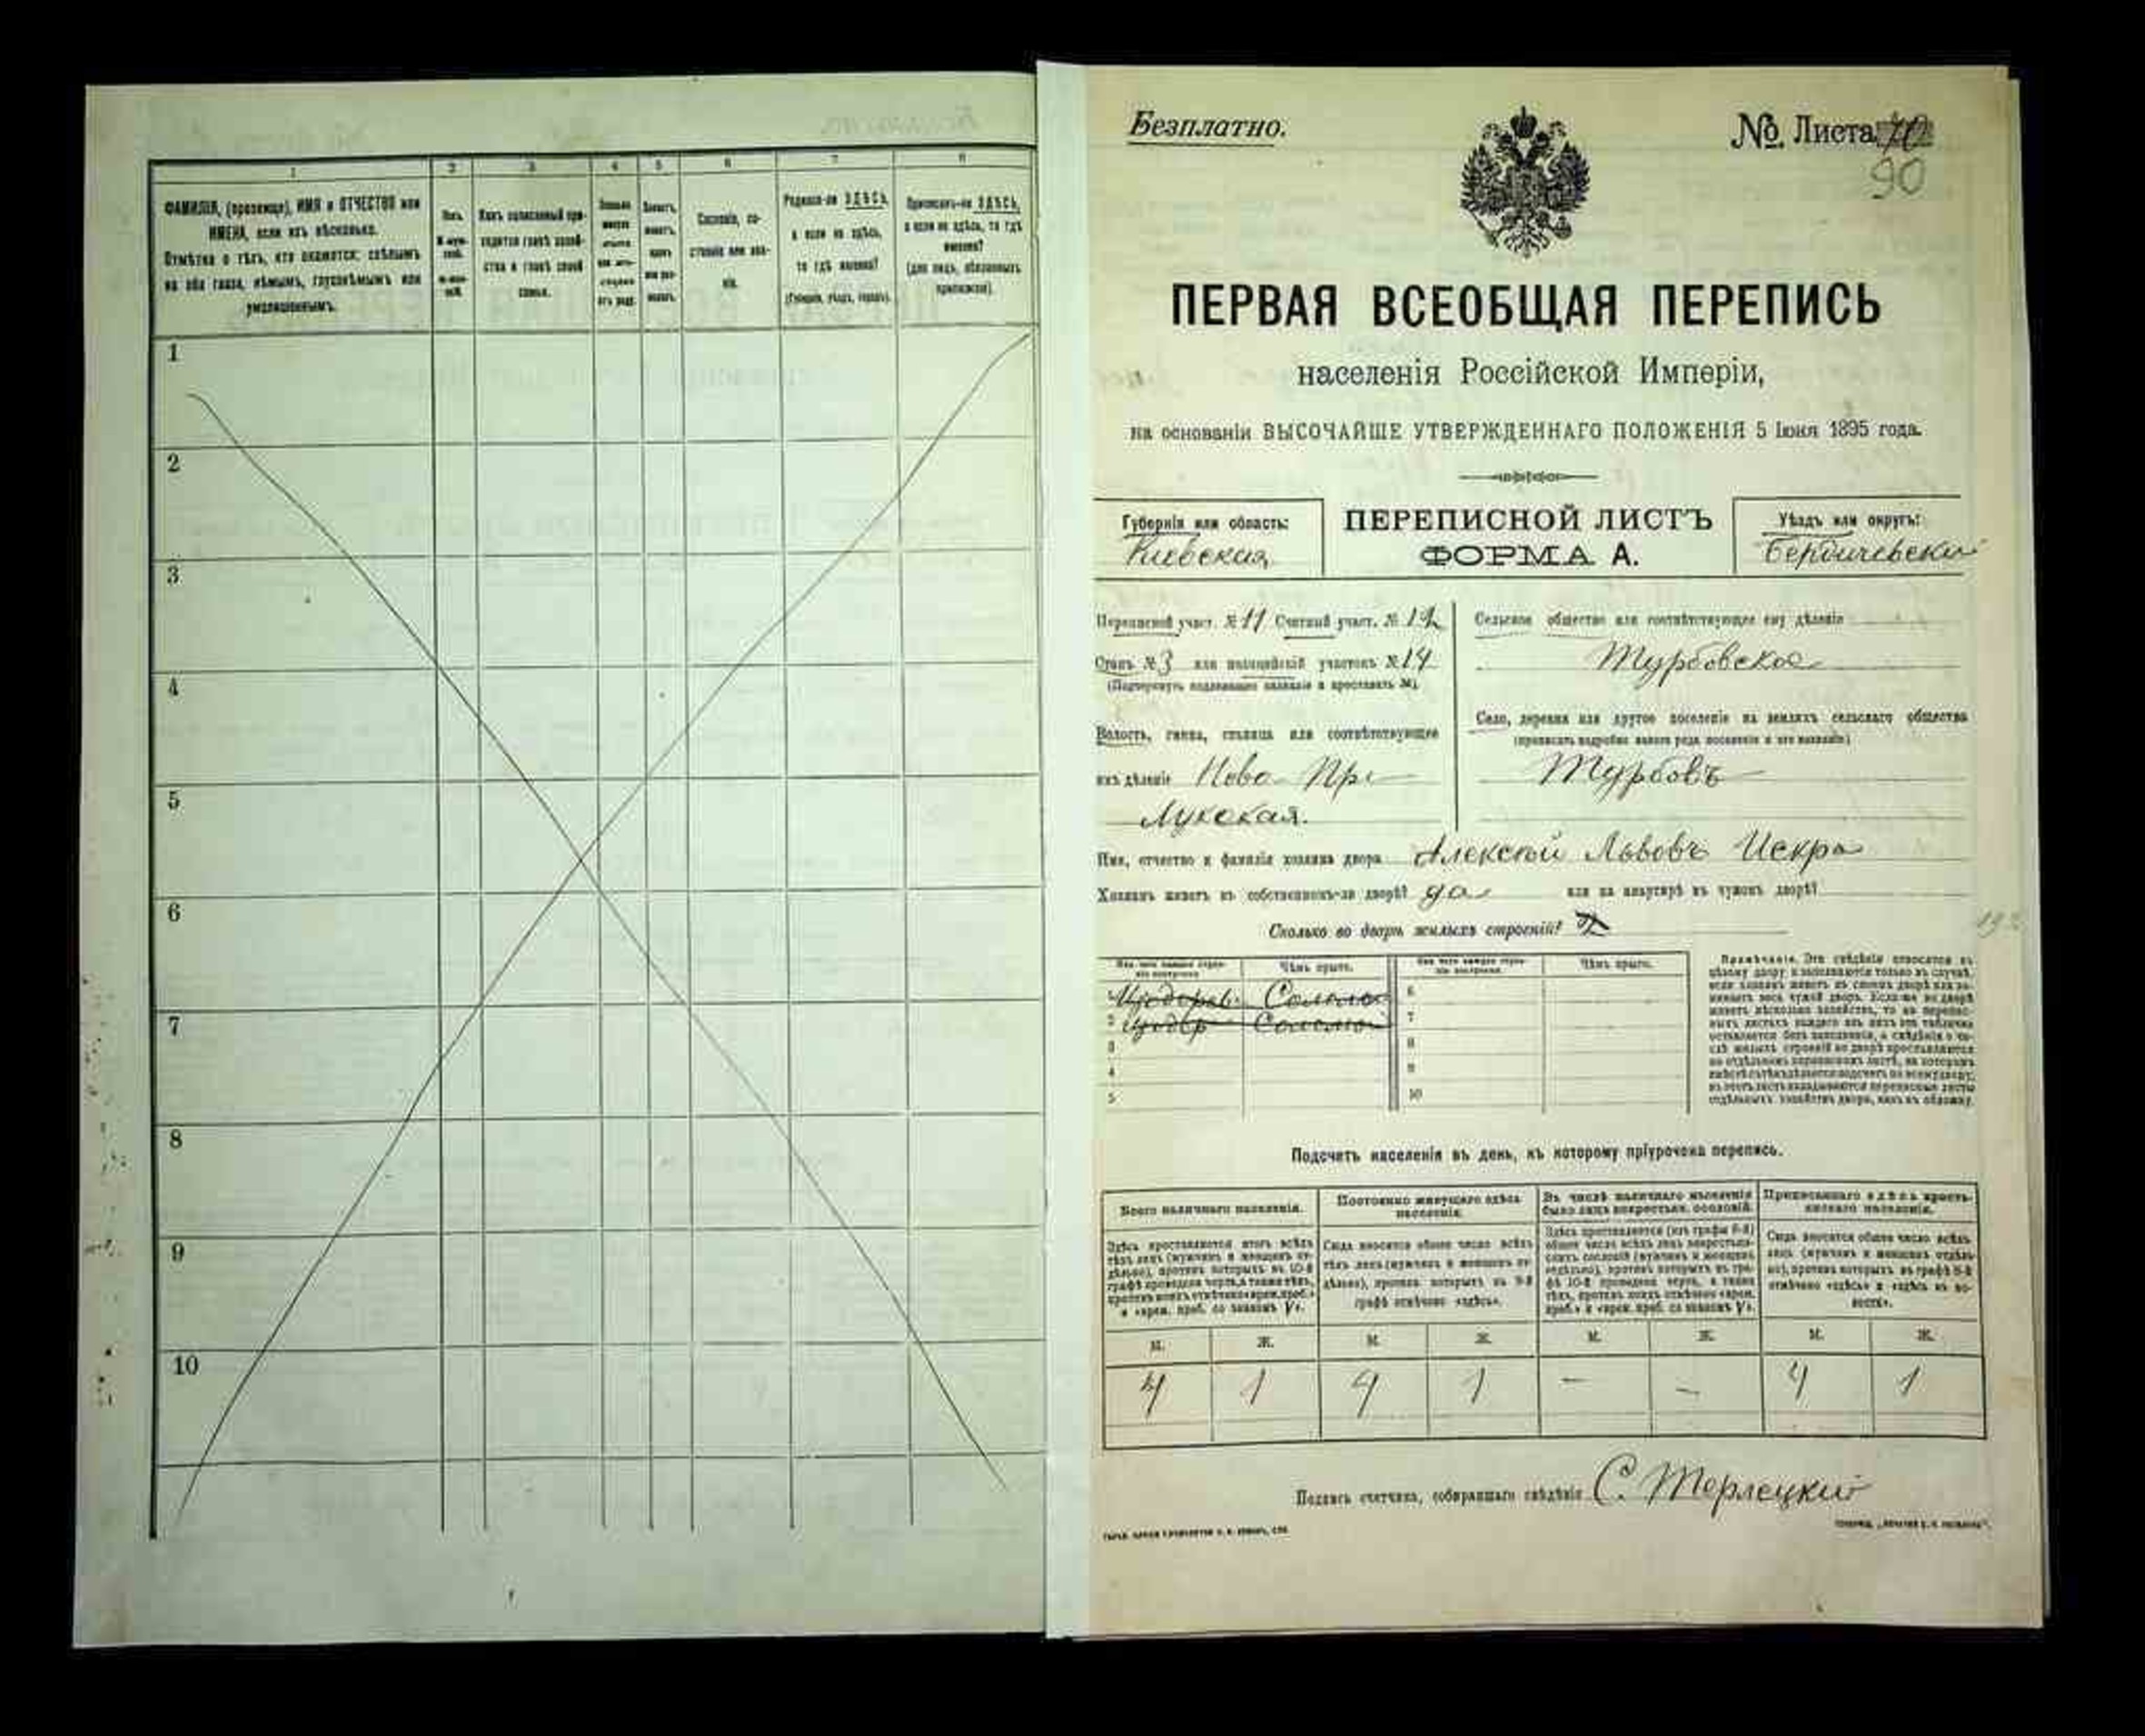 1 2 3 4 5 6 7 8
ФАМИЛІЯ, (прозвище), ИМЯ и ОТЧЕСТВО или
ИМЕНА, если ихъ нѣсколько.
Отмѣтка о тѣхъ, кто окажется: слѣпымъ
на оба глаза, нѣмымъ, глухонѣмымъ или
умалишеннымъ.
Полъ.
Какъ записанный при-
ходится главѣ хозяй-
ства и главѣ своей
семьи.
Сословіе, со-
стояніе или зва-
ніе.
Родился-ли ЗДѢСЬ,
а если не здѣсь,
то гдѣ именно?
(Губернія, уѣздъ, городъ).
Приписанъ-ли ЗДѢСЬ,
а если не здѣсь, то гдѣ
именно?
(для лицъ, обязанныхъ
припискою).
1
2
3
4
5
6
7
8
9
10
Безплатно.
№ Листа 70
90
ПЕРВАЯ ВСЕОБЩАЯ ПЕРЕПИСЬ
населенія Россійской Имперіи,
на основаніи ВЫСОЧАЙШЕ УТВЕРЖДЕННАГО ПОЛОЖЕНІЯ 5 Іюня 1895 года.
Губернія или область:
Киевская
ПЕРЕПИСНОЙ ЛИСТЪ
ФОРМА А.
Уѣздъ или округъ:
Бердичевский
Переписной участ. № 11 Счетный участ. № 12
Станъ № 3 или полицейскій участокъ № 14
(Подчеркнуть надлежащее названіе и проставить №).
Волость, гмина, станица или соотвѣтствующее
имъ дѣленіе Ново При
Лукская.
Сельское общество или соотвѣтствующее ему дѣленіе
Турбовское
Село, деревня или другое поселеніе на земляхъ сельскаго общества
(прописать подробно какого рода поселеніе и его названіе)
Турбовъ
Имя, отчество и фамилія хозяина двора Алексѣй Львовъ Искра
Хозяинъ живетъ въ собственномъ-ли дворѣ? да или на квартирѣ въ чужомъ дворѣ?
Сколько во дворѣ жилыхъ строеній?
Изъ чего каждое строе-
ніе построено.
Чѣмъ крыто.
Изъ чего каждое строе-
ніе построено.
Чѣмъ крыто.
1 Соломой
2 Соломой
3
4
5
6
7
8
9
10
Примѣчаніе. Эти свѣдѣнія относятся къ
цѣлому двору и заполняются только въ случаѣ,
если хозяинъ живетъ въ своемъ дворѣ или за-
нимаетъ весь чужой дворъ. Если-же во дворѣ
живетъ нѣсколько хозяйствъ, то на перепис-
ныхъ листахъ каждаго изъ нихъ эта табличка
оставляется безъ заполненія, а свѣдѣнія о чи-
слѣ жилыхъ строеній во дворѣ проставляются
на отдѣльномъ переписномъ листѣ, на которомъ
вмѣстѣ съ тѣмъ дѣлается подсчетъ по всему двору;
въ этотъ листъ вкладываются переписные листы
отдѣльныхъ хозяйствъ двора, какъ въ обложку.
Подсчетъ населенія въ день, къ которому пріурочена перепись.
Всего наличнаго населенія.
Здѣсь проставляются итогъ всѣхъ
тѣхъ лицъ (мужчинъ и женщинъ от-
дѣльно), противъ которыхъ въ 10-й
графѣ проведена черта, а также тѣхъ,
противъ коихъ отмѣчено «врем. преб.»
и «врем. преб. со знакомъ V».
Постоянно живущаго здѣсь
населенія.
Сюда вносится общее число всѣхъ
тѣхъ лицъ (мужчинъ и женщинъ от-
дѣльно), противъ которыхъ въ 9-й
графѣ отмѣчено «здѣсь».
Въ числѣ наличнаго населенія
было лицъ некрестьян. сословій.
Здѣсь проставляется (изъ графы 6-й)
общее число всѣхъ лицъ некрестьян-
скихъ сословій (мужчинъ и женщинъ
отдѣльно), противъ которыхъ въ гра-
фѣ 10-й проведена черта, а также
тѣхъ, противъ коихъ отмѣчено «врем.
преб.» и «врем. преб. со знакомъ V».
Приписаннаго здѣсь кресть-
янскаго населенія.
Сюда вносится общее число всѣхъ
лицъ (мужчинъ и женщинъ отдѣль-
но), противъ которыхъ въ графѣ 8-й
отмѣчено «здѣсь» и «здѣсь въ во-
лости».
М. Ж. М. Ж. М. Ж. М. Ж.
4 1 4 1 — — 4 1
Подпись счетчика, собиравшаго свѣдѣнія С. Терлецкий